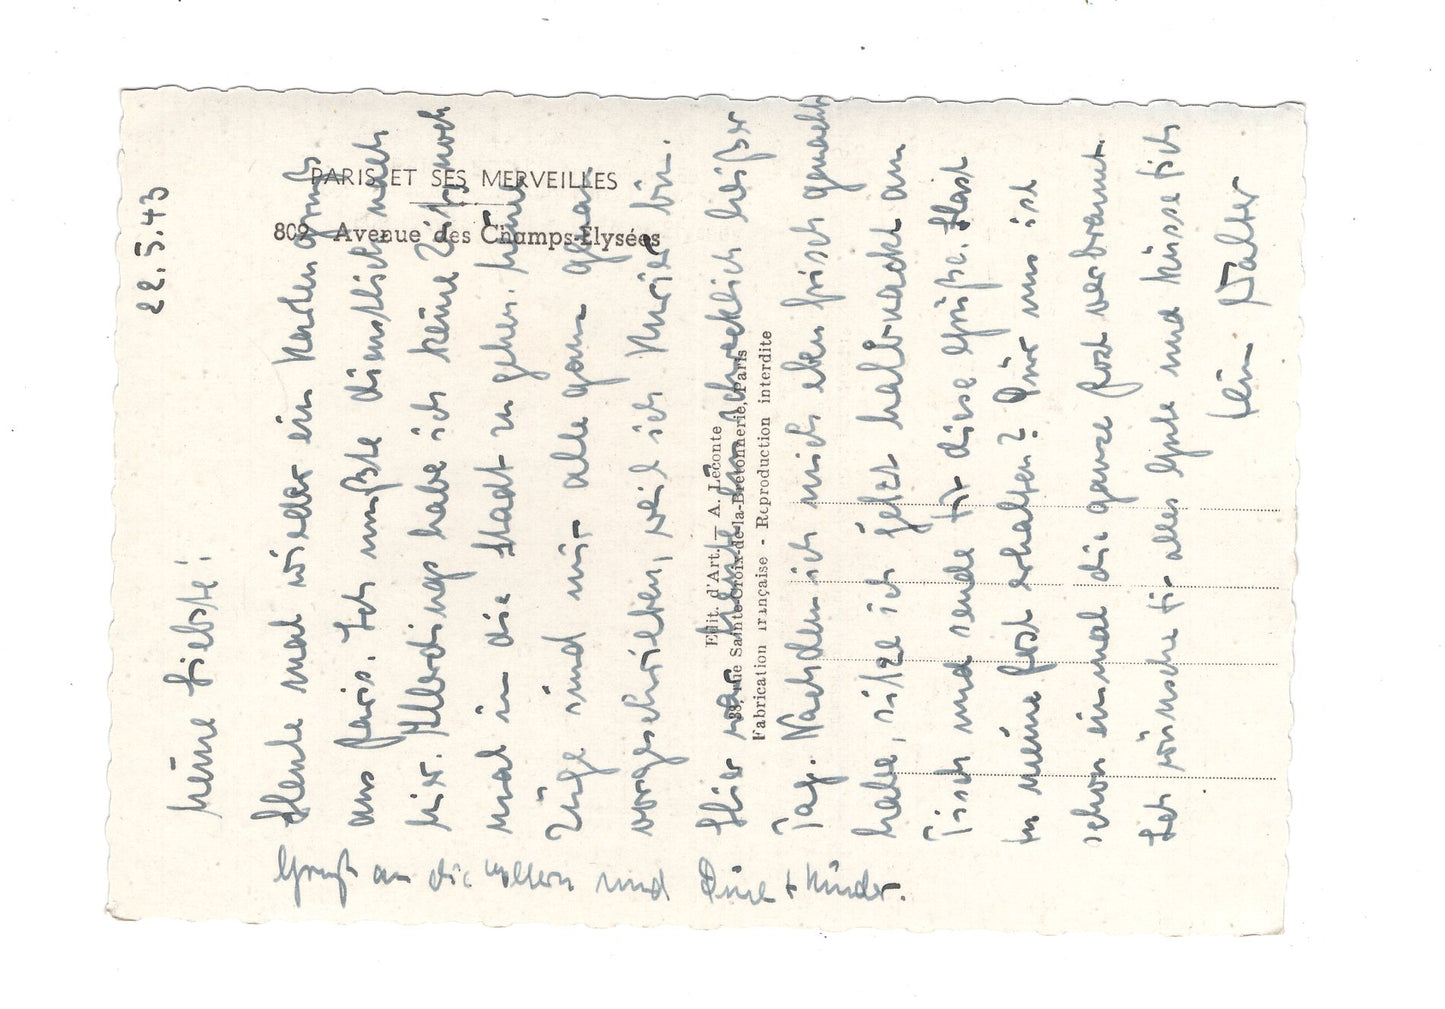 PARIS ET SES MERVEILLES
809 Avenue des Champs-Élysées
Edit. d'Art. — A. Leconte
38, rue Sainte-Croix-de-la-Bretonnerie, Paris
Fabrication française - Reproduction interdite
22.5.43
Meine Liebste!
Heute mal wieder ein Kartengruß
aus Paris. Ich mußte dienstlich nach
hier. Allerdings habe ich keine Zeit noch
mal in die Stadt zu gehen. Meine
Züge sind mir alle genau
vorgeschrieben, weil ich Kurier bin.
Hier war heute ein schrecklich heißer
Tag. Nachdem ich mich eben frisch gemacht
habe, sitze ich jetzt halbnackt am
Tisch und sende Dir diese Grüße. Hast
Du meine Post erhalten? Bei uns ist
schon einmal die ganze Post verbrannt.
Ich wünsche Dir alles Gute und küsse Dich
Dein Walter
Gruß an die Eltern und + Kinder.